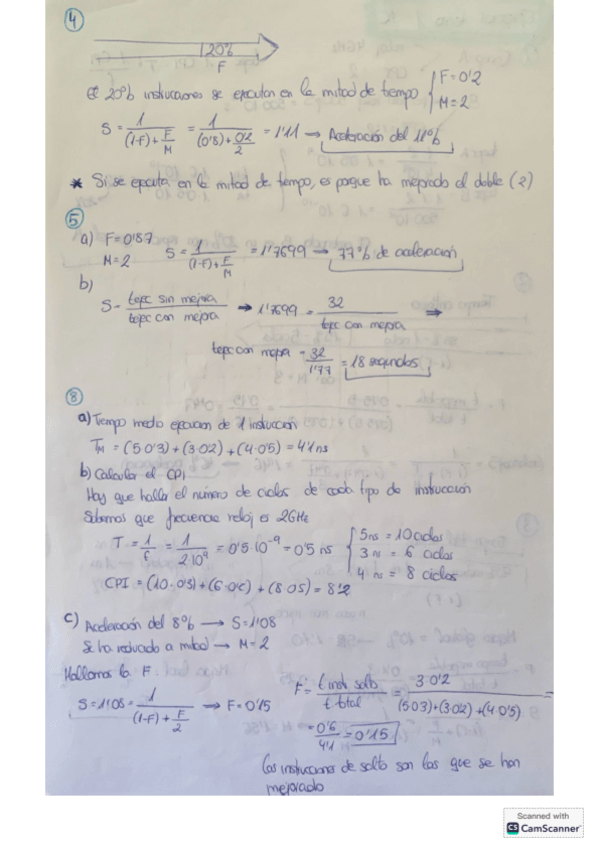 ④
20%
F
El 20% instrucciones se ejecutan en la mitad de tiempo { F = 0'2
M = 2
S = 1 / ((1-F) + F/M) = 1 / ((0'8) + 0'2/2) = 1'11 → Aceleración del 11%
* Si se ejecuta en la mitad de tiempo, es porque ha mejorado el doble (2)
⑤
a) F = 0'87
M = 2
S = 1 / ((1-F) + F/M) = 1'7699 → 77% de aceleración
b)
S = tejec sin mejora / tejec con mejora → 1'7699 = 32 / tejec con mejora ⇒
tejec con mejora = 32 / 1'77 = 18 segundos
⑧
a) Tiempo medio ejecucion de 1 instrucción
TM = (5·0'3) + (3·0'2) + (4·0'5) = 4'1 ns
b) Calcular el CPI
Hay que hallar el número de ciclos de cada tipo de instrucción
Sabemos que frecuencia reloj es 2GHz
T = 1/f = 1 / 2·10^9 = 0'5·10^-9 = 0'5 ns { 5ns = 10 ciclos
3 ns = 6 ciclos
4 ns = 8 ciclos
CPI = (10·0'3) + (6·0'2) + (8·0'5) = 8'2
c) Aceleración del 8% → S = 1'08
Se ha reducido a mitad → M = 2
Hallamos la F:
S = 1'08 = 1 / ((1-F) + F/2) → F = 0'15
F = t inst salto / t total = 3·0'2 / ((5·0'3) + (3·0'2) + (4·0'5)) =
= 0'6 / 4'1 = 0'15
Las instrucciones de salto son las que se han
mejorado
Scanned with
CS CamScanner